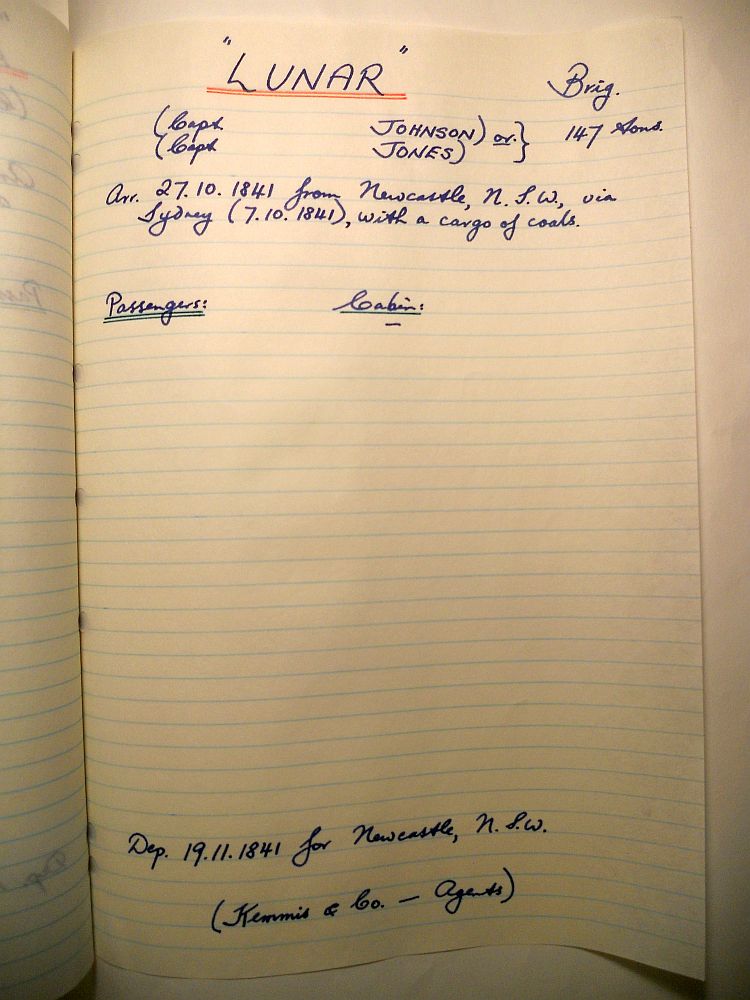 "LUNAR" Brig.
(Capt. JOHNSON) or } 147 tons.
(Capt JONES)
Arr. 27.10.1841 from Newcastle, N.S.W., via
Sydney (7.10.1841), with a cargo of coals.
Passengers: Cabin:
—
Dep. 19.11.1841 for Newcastle, N.S.W.
(Kemmis & Co. — Agents)